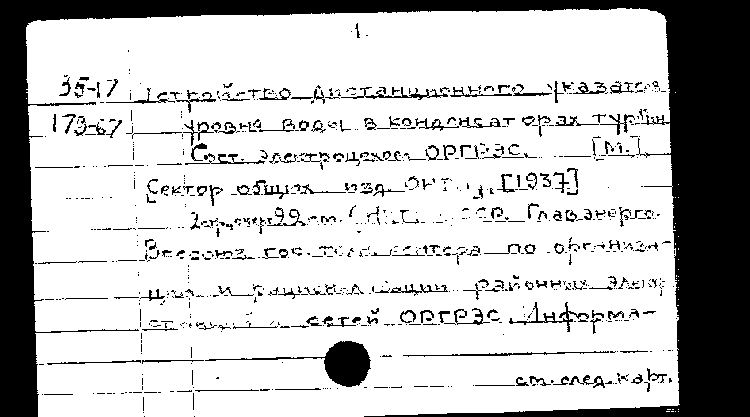 1.
35-17 Устройство дистанционного указателя
173-67 уровня воды в конденсаторах турбин
Сост. Электроцехом ОРГРЭС. [М.],
Сектор общих изд. ОНТИ, [1937]
2 стр., черт. 22 см. СССР. Главэнерго.
Всесоюз. гос. контора по организа-
ции и рационализации районных электр.
станций и сетей ОРГРЭС. Информа-
см. след. карт.